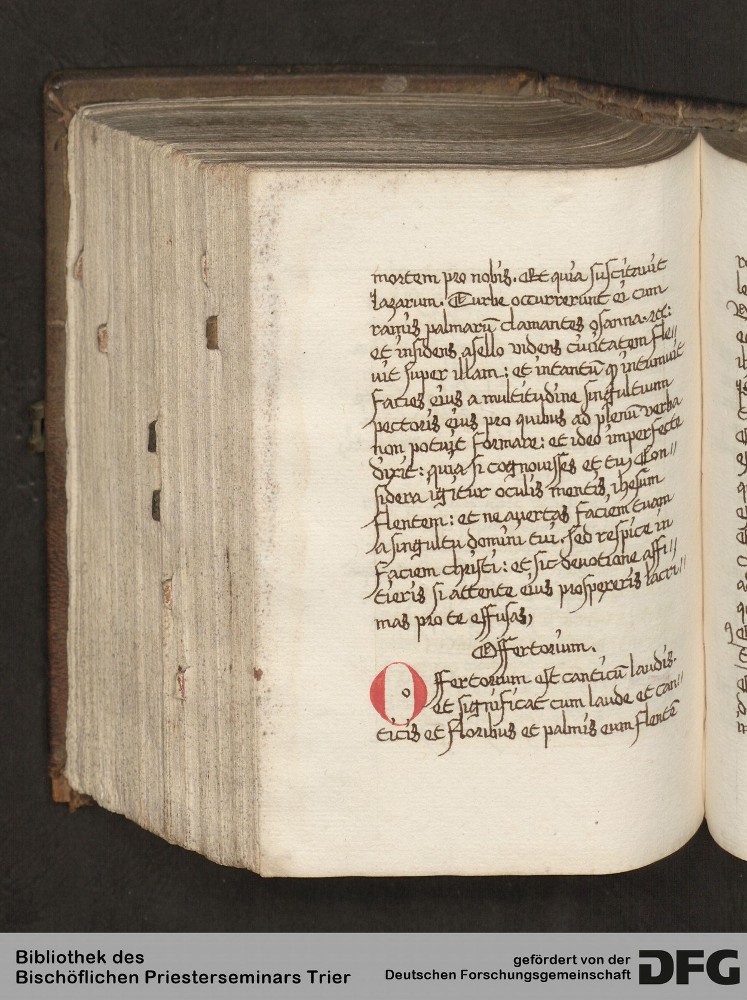 mortem pro nobis. Et quia suscitavit
lazarum. Turbe occurrerunt ei cum
ramis palmarū clamantes osanna. ꝛc:
et insidens asello videns civitatem fle//
vit super illam: et intantū ꝙ intumuit
facies eius a multitudine singultuum
pectoris eius pro quibus ad plenū verba
non potuit formare: et ideo imperfecte
dixit: quia si cognovisses et tu, Con//
sidera igitur oculis mentis ihesum
flentem: et ne avertas faciem tuam
a singultu domini tui. sed respice in
faciem christi: et sic devotione affi//
cieris si attente eius prospexeris lacri//
mas pro te effusas,
Offertorium.
Offertorium est canticū laudis.
et significat cum laude et can//
ticis et floribus et palmis eum flentē
Bibliothek des
Bischöflichen Priesterseminars Trier
gefördert von der
Deutschen Forschungsgemeinschaft
DFG